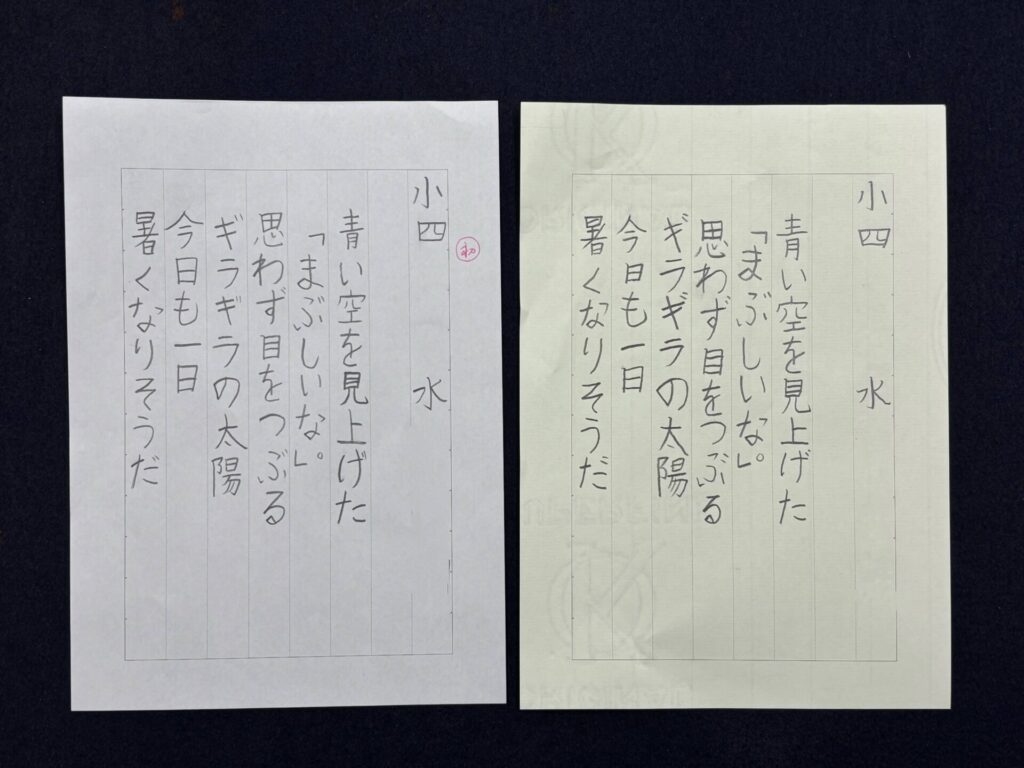 小四 水
㊞初
青い空を見上げた
「まぶしいな。」
思わず目をつぶる
ギラギラの太陽
今日も一日
暑くなりそうだ
小四 水
青い空を見上げた
「まぶしいな。」
思わず目をつぶる
ギラギラの太陽
今日も一日
暑くなりそうだ